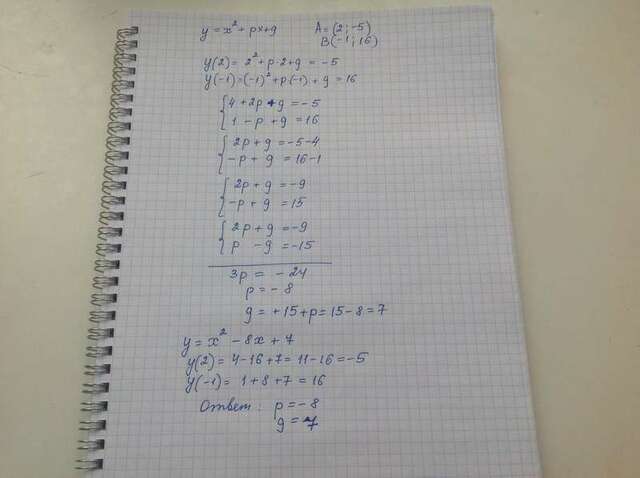 y = x² + px + g A = (2; -5)
B(-1; 16)
y(2) = 2² + p·2 + g = -5
y(-1) = (-1)² + p·(-1) + g = 16
{ 4 + 2p + g = -5
1 - p + g = 16
{ 2p + g = -5-4
-p + g = 16-1
{ 2p + g = -9
-p + g = 15
{ 2p + g = -9
p - g = -15
3p = -24
p = -8
g = +15+p = 15-8 = 7
y = x² - 8x + 7
y(2) = 4-16+7 = 11-16 = -5
y(-1) = 1+8+7 = 16
Ответ: p = -8
g = 7